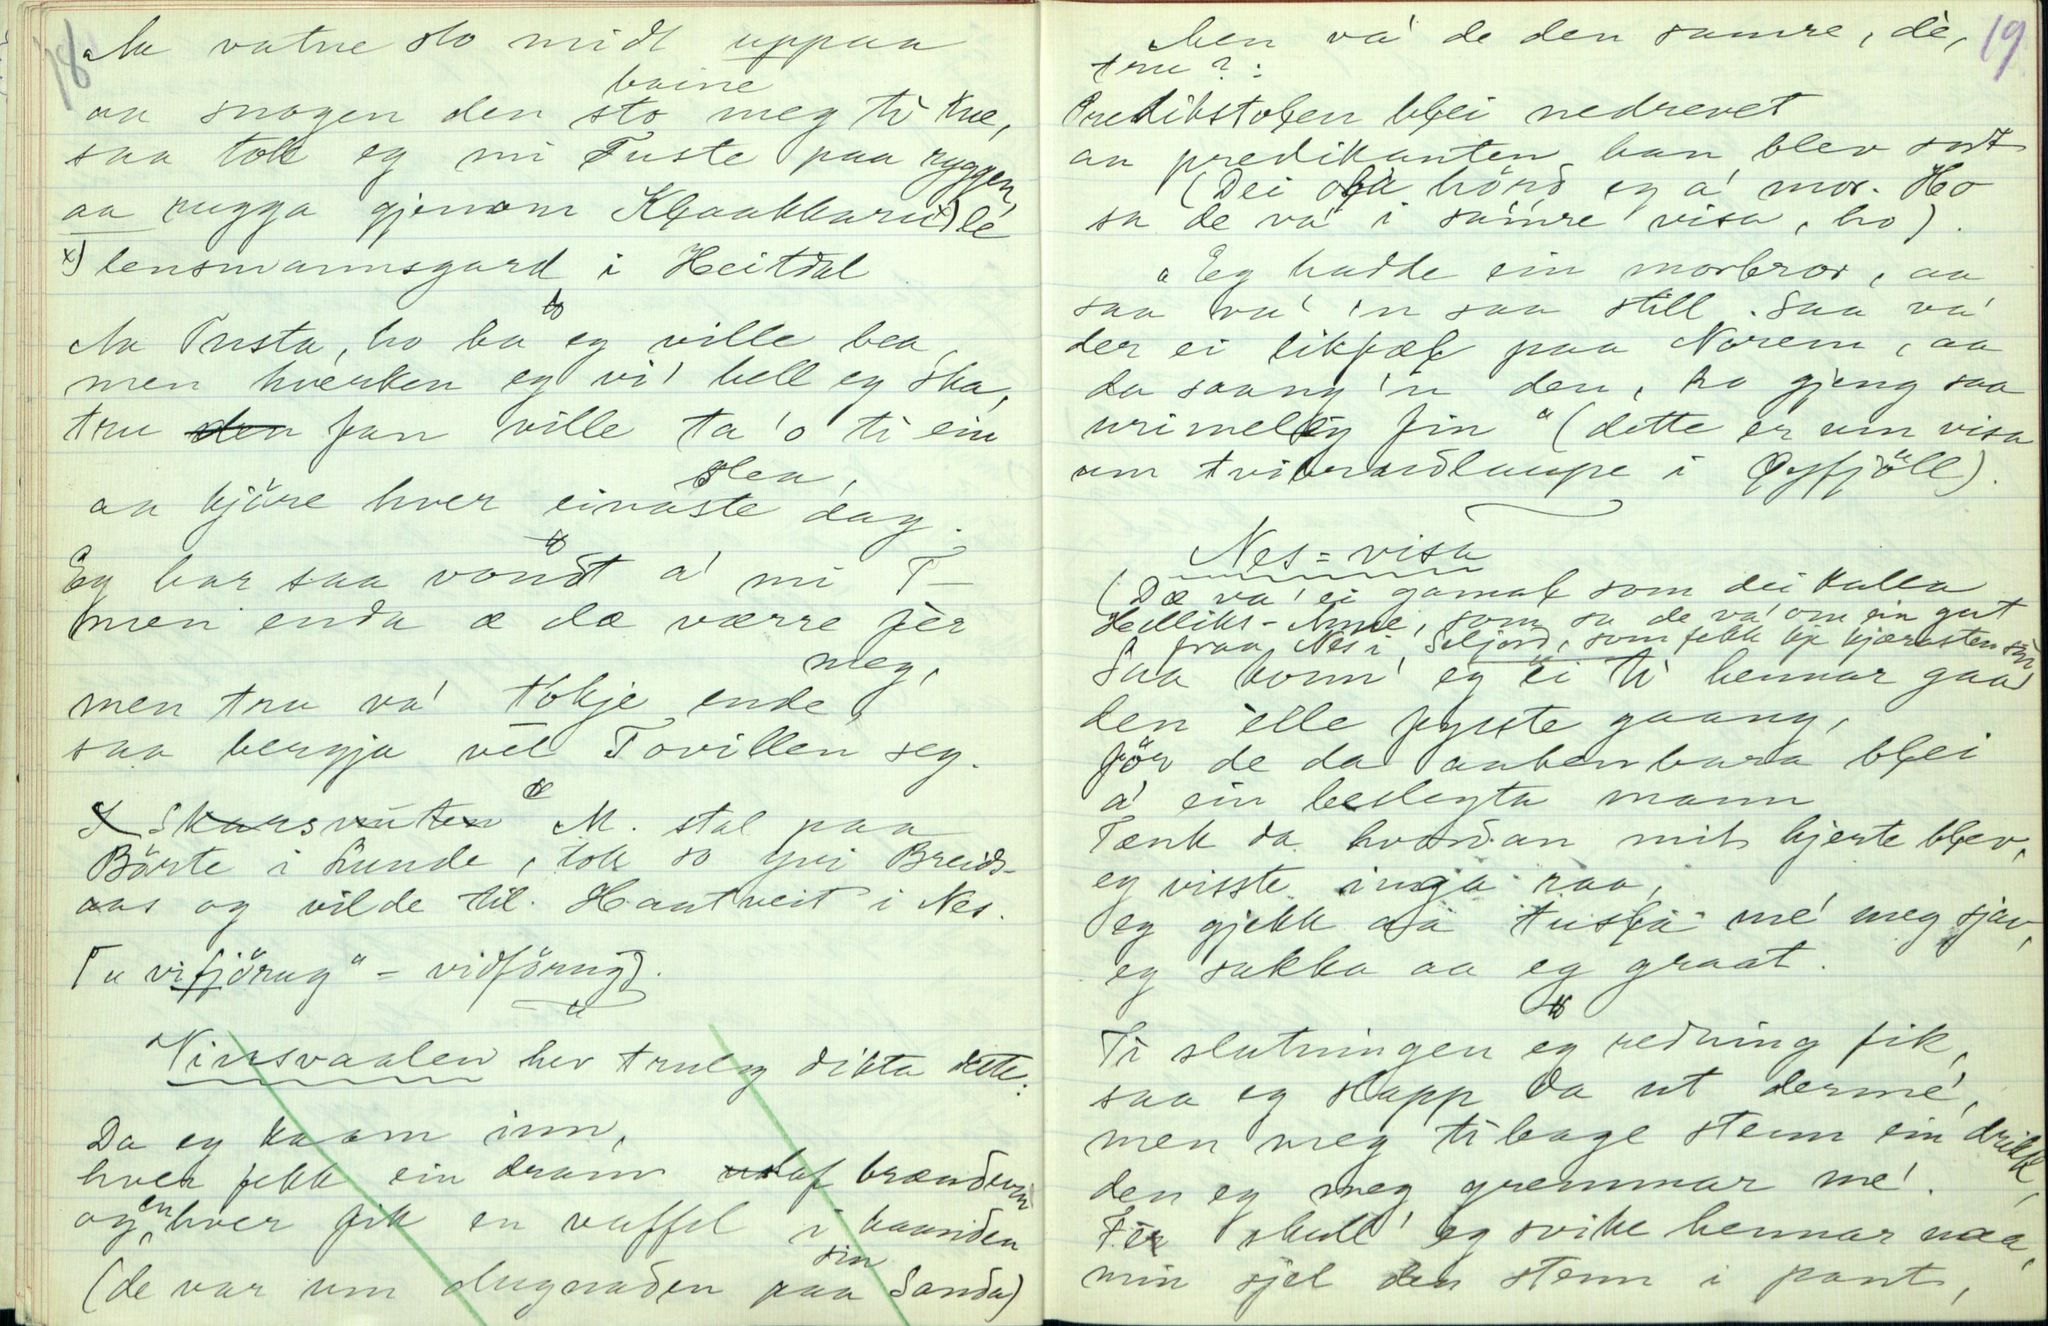 18
Aa vatne sto midt uppaa
baine
aa snogen den sto meg ti kne,
saa tok eg mi Tuste paa ryggen,
aa rugga gjenom Klaakkaru x) lé
x) lensmannsgard i Heitdal
Aa Tusta, ho ba eg ville bea
men hverken eg vi' hell eg ska,
tru den fan ville ta 'o ti ein
slea,
aa kjöre hver einaste dag.
Eg har saa vondt a' mi T—
men enda æ dæ værre fèr
meg,
men tru va' tokje ende,
saa bergja vel Tovillen seg.
I Skarsnuten M. stal paa
Börte i Lunde, tok so yvi Breids-
aas og vilde til Hantveit i Nes.
Tu vifjörug" = vidförug).
Ninsvaalen hev truleg dikta dette:
Da eg kaam inn,
hver fekk ein dram af brændevin
og en hver fik en vaffel i haanden
sin
(de var um dugnaden paa Sanda)
19
Men va' de den samre, dè,
tru?:
Predikstolen blei nedrevet
aa predikanten han blev sort
(Dei ola hörd eg a' mor. Ho
sa de va' i samre visa, ho).
"Eg hadde ein morbror, aa
saa va' 'n saa still. Saa va'
der ei likfæl paa Norem, aa
da saang 'n den, ho gjeng saa
urimelig fin" (dette er um visa
um tvibrudlaupe i Øyfjöll).
Nes-visa
(Dæ va' ei gamal som dei kalla
Hedliks-Anne, som sa de va' om ein gut
fraa Nes i Seljord, som fekk kje kjærasten sin
Saa komm' eg ei ti hennar gaar
den elle fyrste gaang,
för de da aabenbara blei
a' ein beslegta mann
Tænk da hvordan mit hjerte blev,
eg visste inga raa,
eg gjekk aa tusla me' meg sjav,
eg sukka aa eg graat.
Ti slutningen eg redning fik,
saa eg slapp da ut dermé,
men meg tibage stenn ein drikk,
den eg meg gremmar me'.
Fèr skull' eg svike hennar naa,
min sjel den stenn i pant,